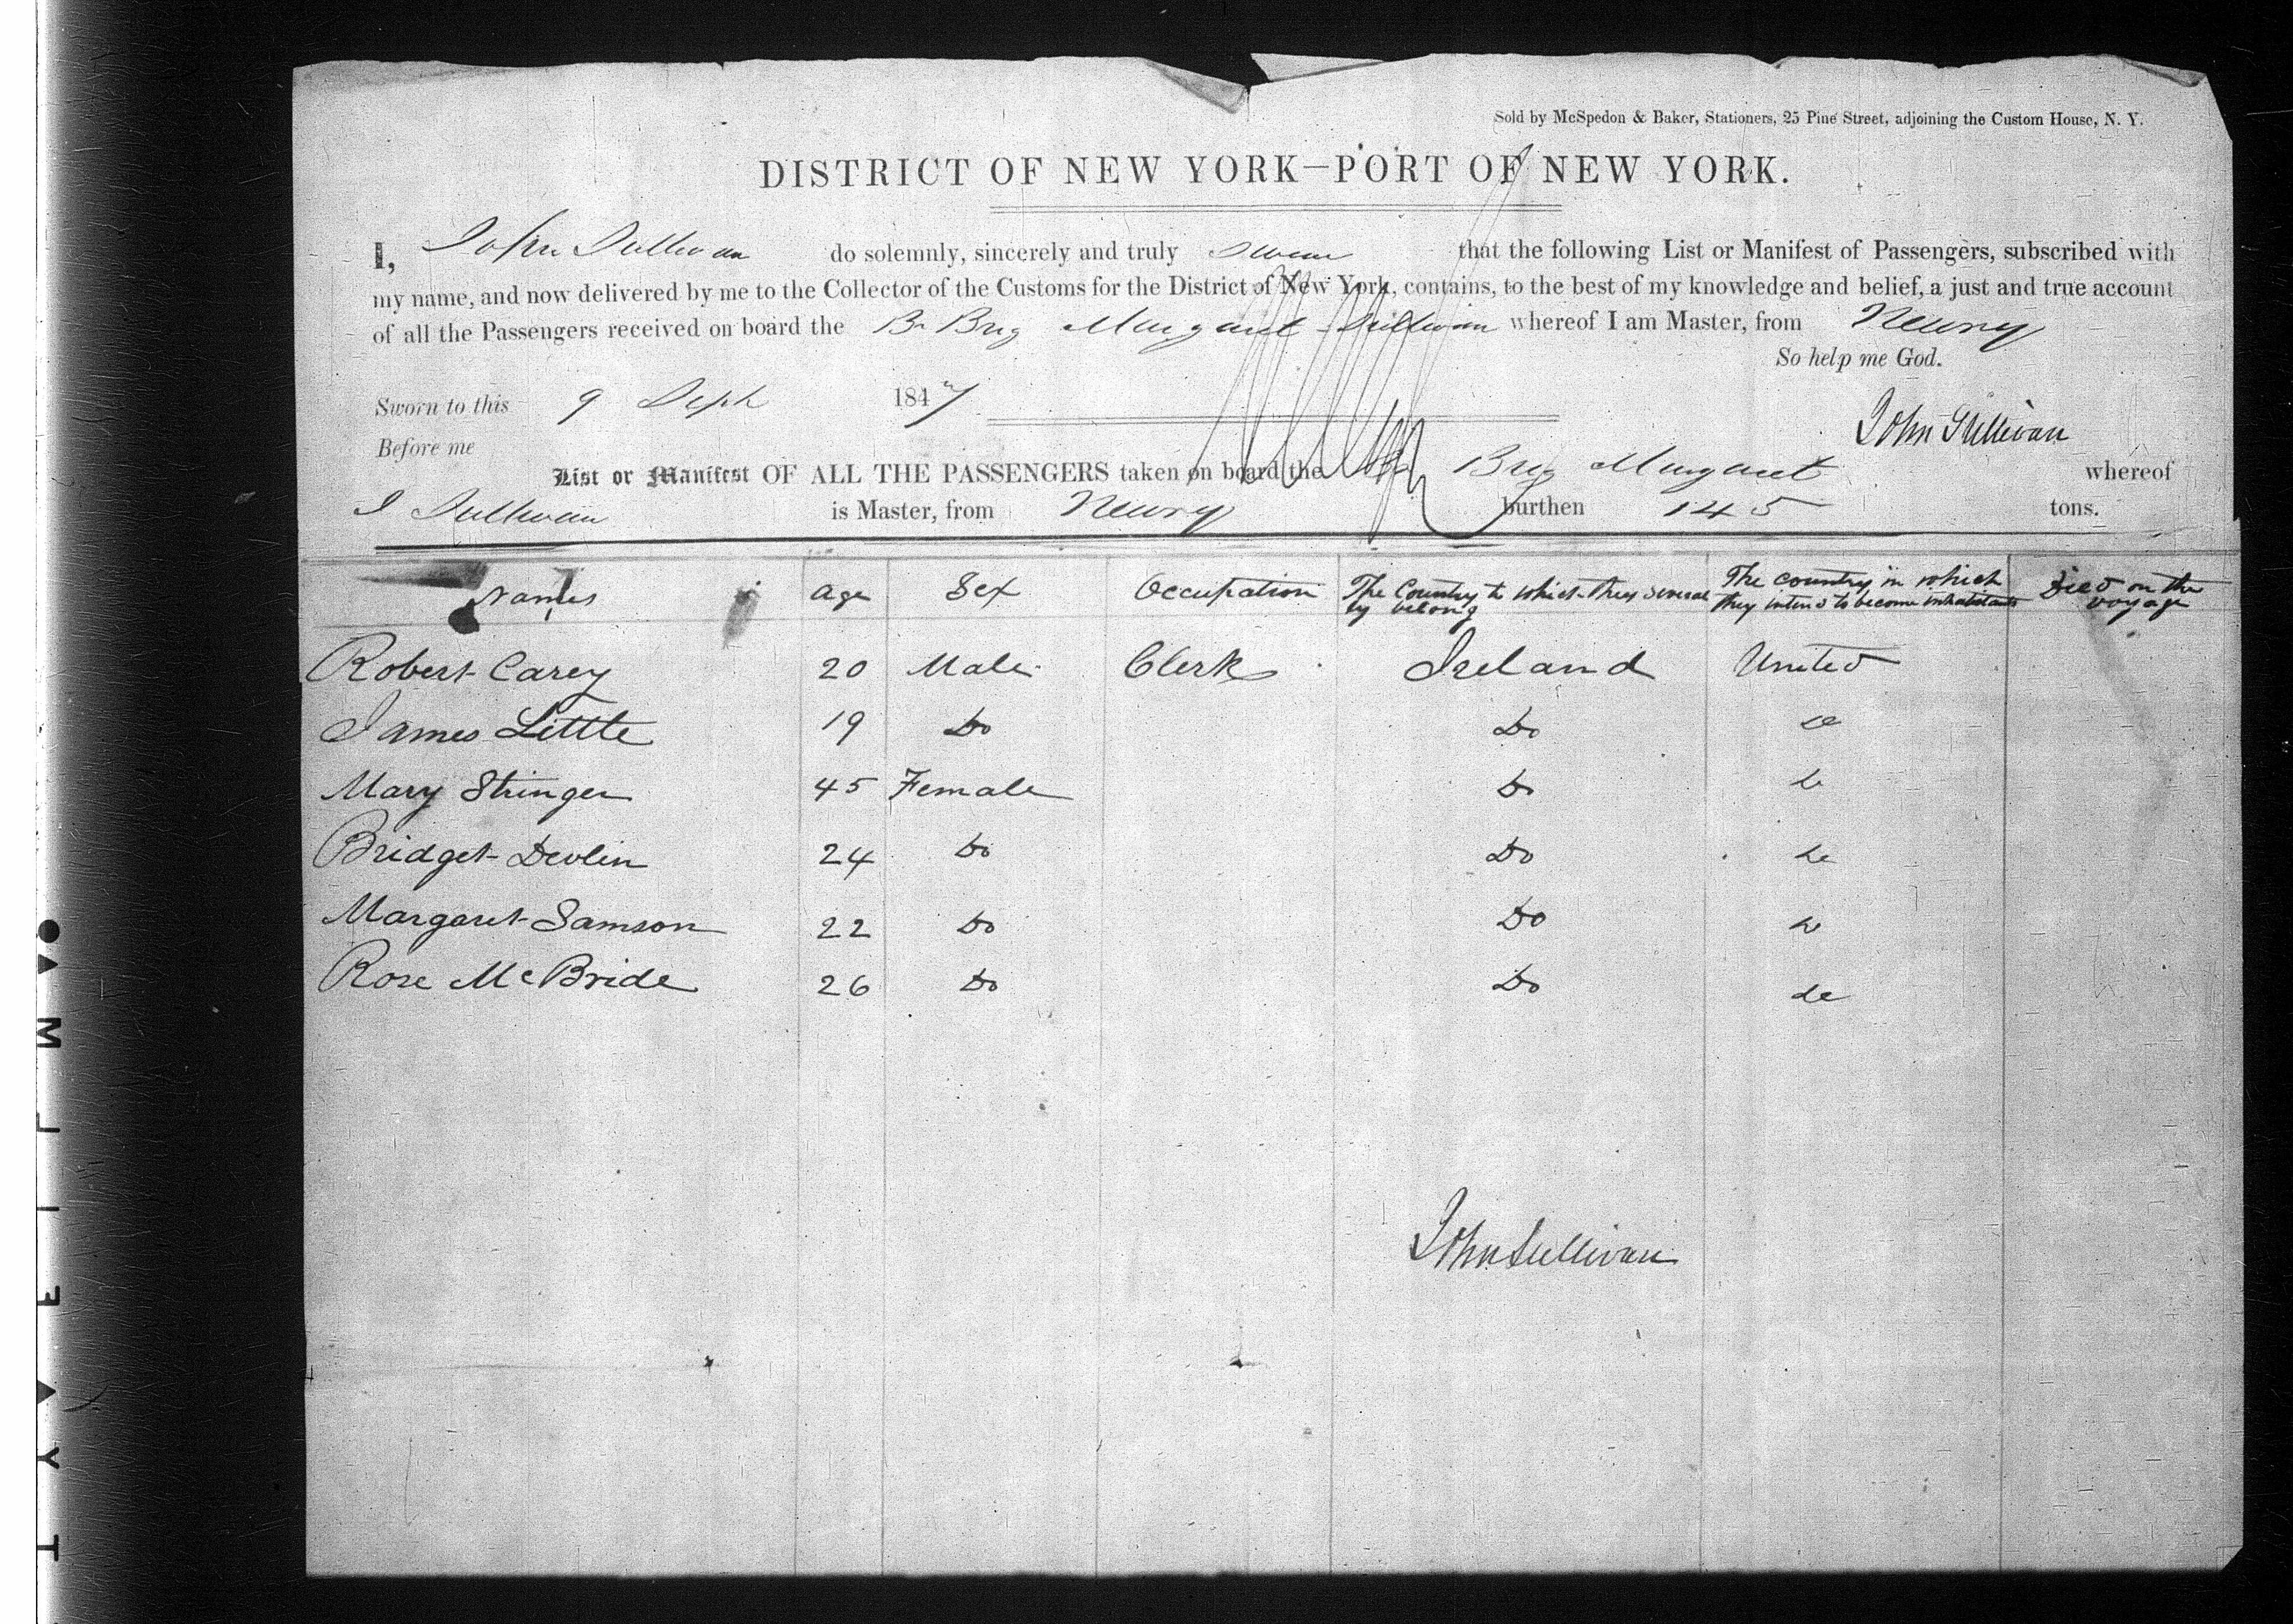 Sold by McSpedon & Baker, Stationers, 25 Pine Street, adjoining the Custom House, N. Y.
DISTRICT OF NEW YORK—PORT OF NEW YORK.
I, John Sullivan do solemnly, sincerely and truly swear that the following List or Manifest of Passengers, subscribed with
my name, and now delivered by me to the Collector of the Customs for the District of New York, contains, to the best of my knowledge and belief, a just and true account
of all the Passengers received on board the Br Brig Margaret Sullivan whereof I am Master, from Newry
So help me God.
Sworn to this 9 Sept 1847
John Sullivan
Before me
List or Manifest OF ALL THE PASSENGERS taken on board the Br Brig Margaret whereof
J Sullivan is Master, from Newry burthen 145 tons.
Names Age Sex Occupation The Country to which they several The country in which Died on the
ly belong they intend to become inhabitants voyage
Robert Carey 20 Male Clerk Ireland United
James Little 19 Do Do Do
Mary Stringer 45 Female Do Do
Bridget Devlin 24 Do Do Do
Margaret Samson 22 Do Do Do
Rose McBride 26 Do Do Do
John Sullivan